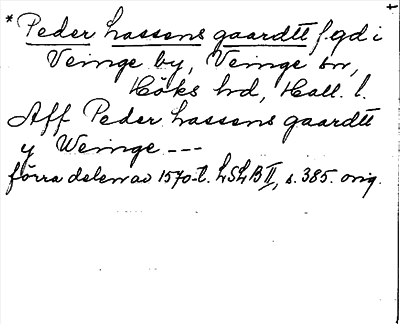 * Peder Lassens gaardtt f.gd i
Veinge by, Veinge sn,
Höks hd, Hall. l.
Aff Peder Lassens gaardtt
y Weinge ---
förra delen av 1570-t. LSLB II, s. 385. orig.